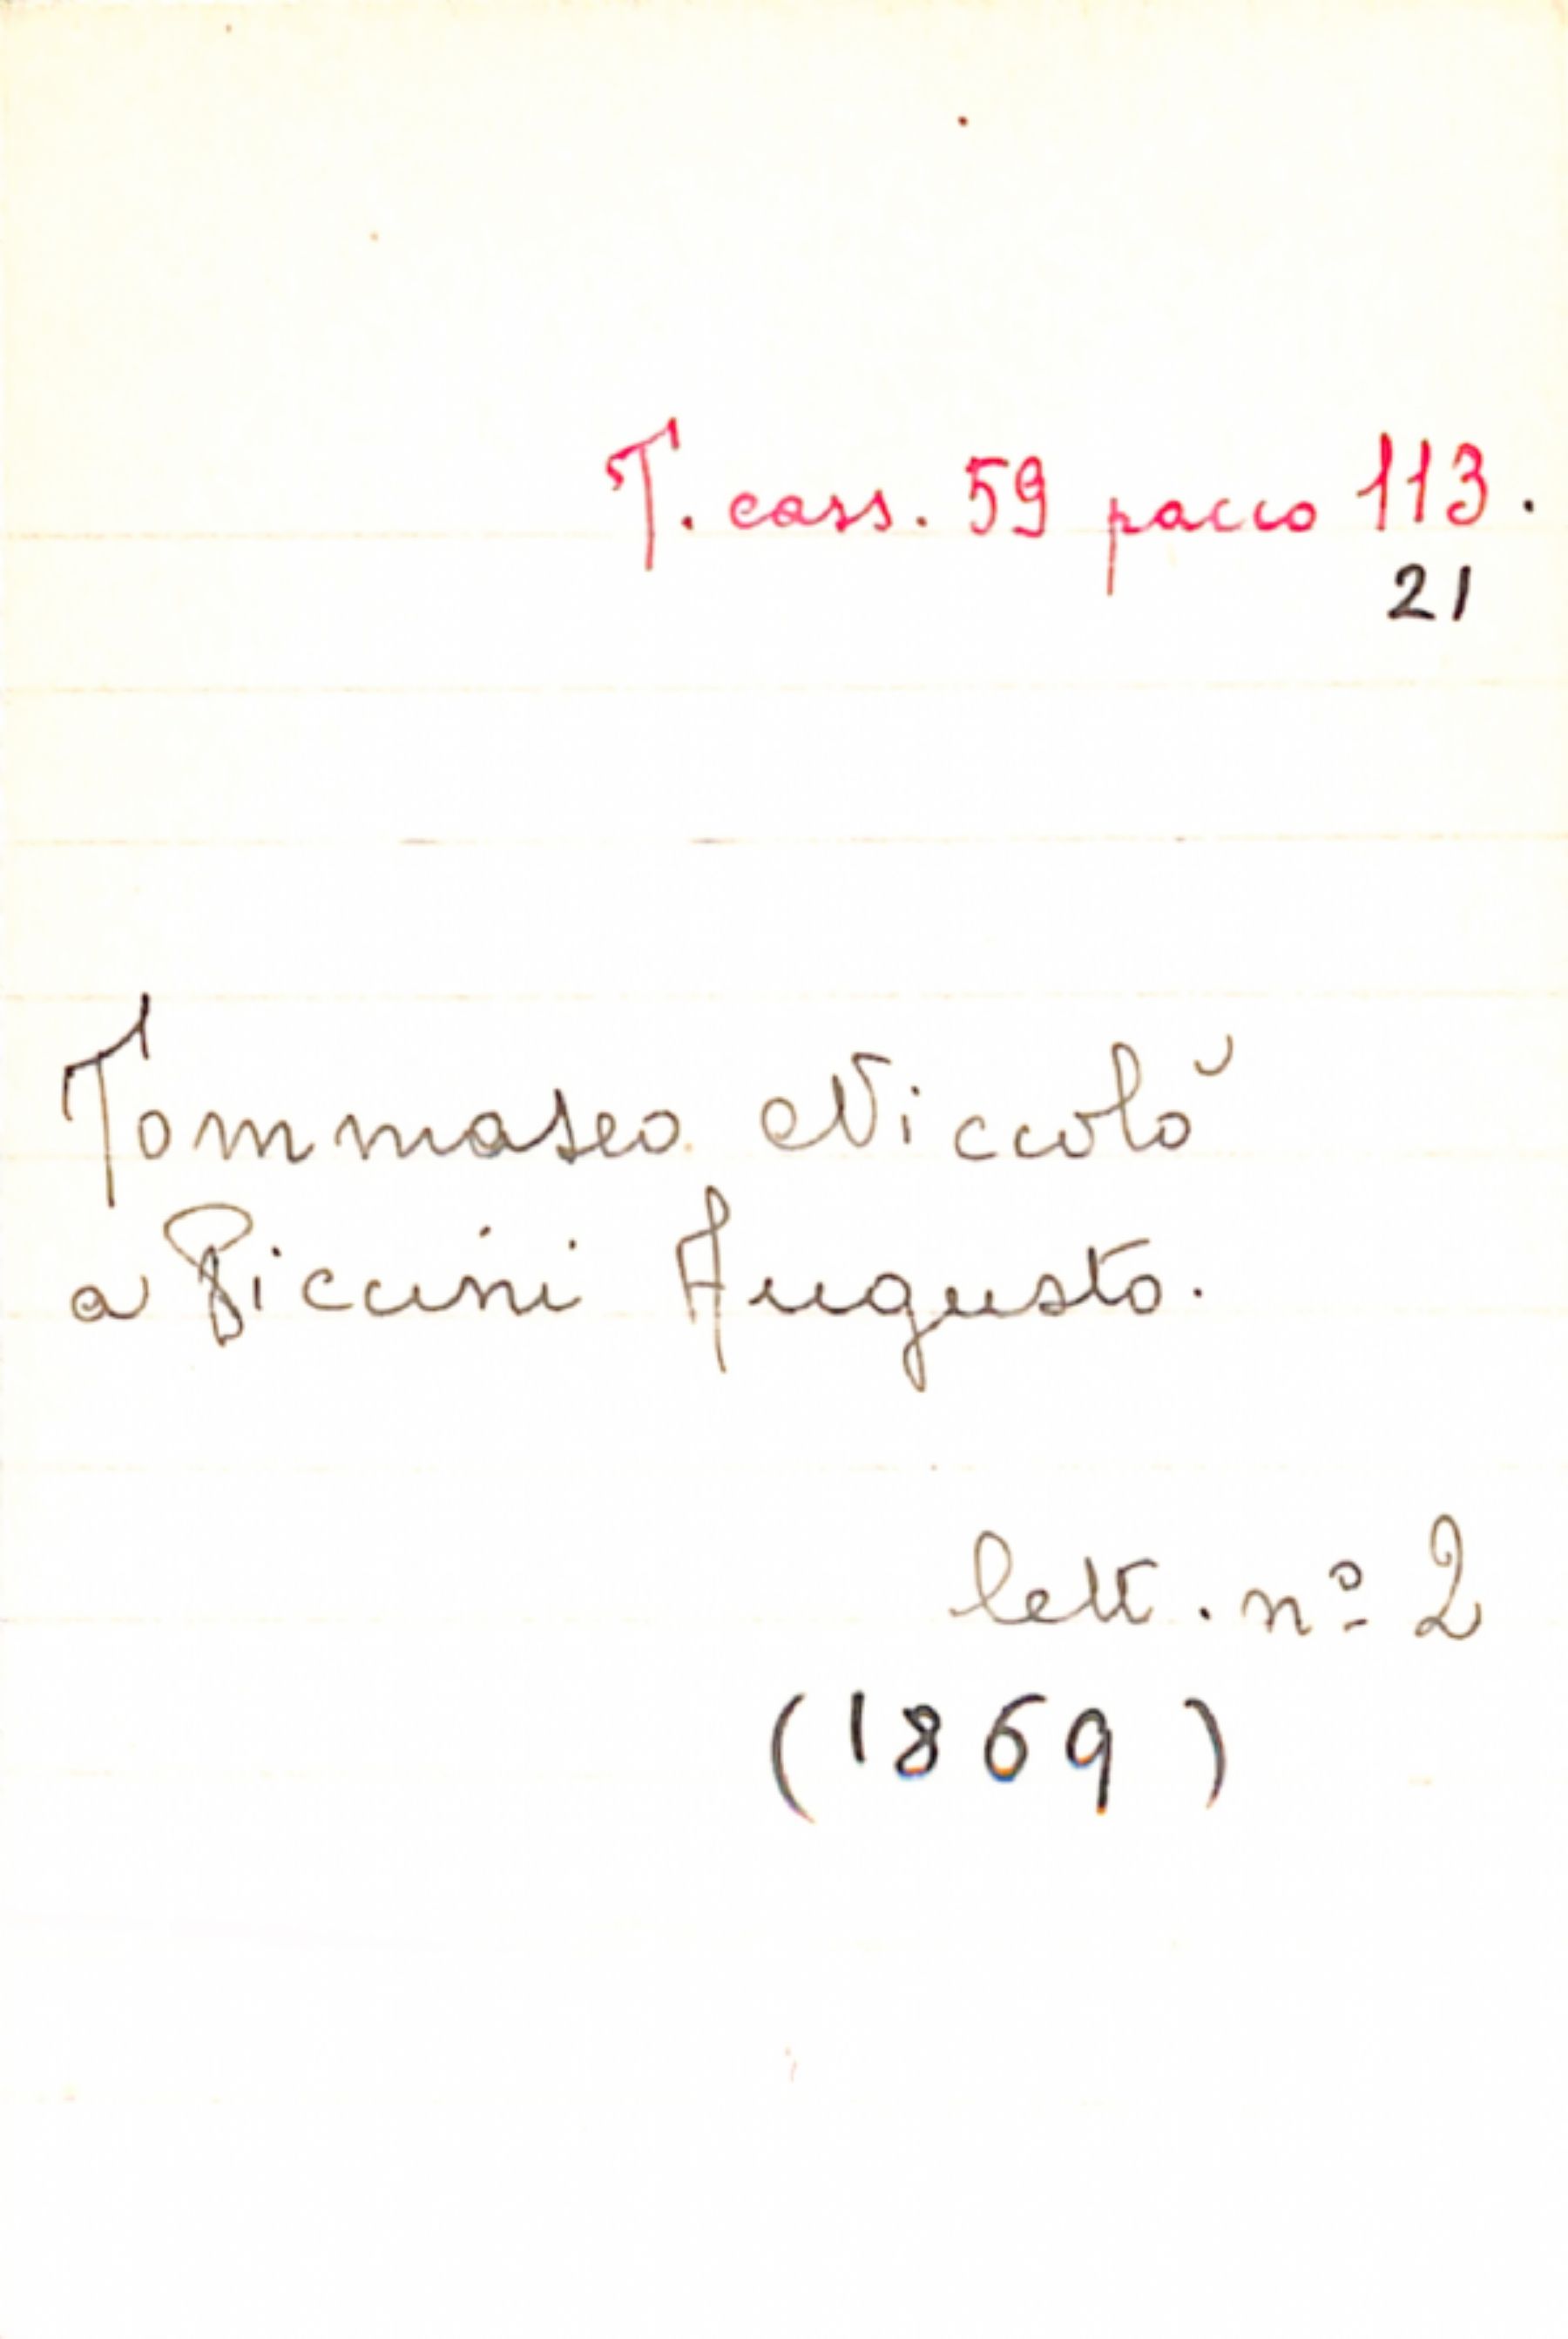 T. cass. 59 pacco 113.
21
Tommaseo Niccolò
a Piccini Augusto.
lett. nº 2
(1869)